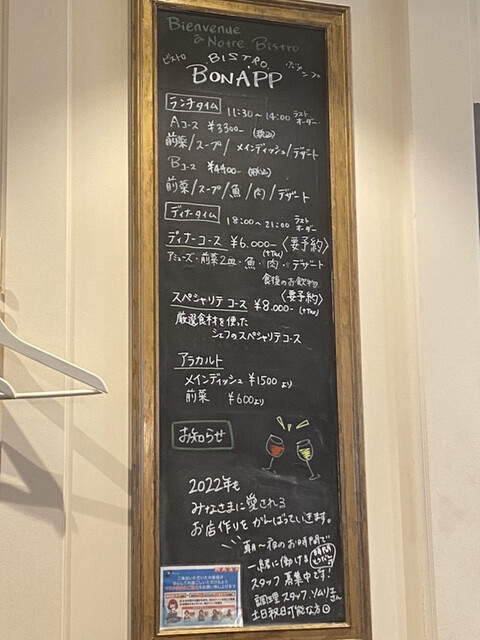 Bienvenue
à Notre Bistro
ビストロ BISTRO ボナップ
BONAPP
ランチタイム 11:30～14:00 ラストオーダー
Aコース ¥3300- (税込)
前菜/スープ/メインディッシュ/デザート
Bコース ¥4400- (税込)
前菜/スープ/魚/肉/デザート
ディナータイム 18:00～21:00 ラストオーダー
ディナーコース ¥6.000- 〈要予約〉
(+Tax)
アミューズ・前菜2皿・魚・肉・デザート
食後のお飲物
スペシャリテ コース ¥8.000- 〈要予約〉
(+Tax)
厳選食材を使った
シェフのスペシャリテコース
アラカルト
メインディッシュ ¥1500より
前菜 ¥600より
お知らせ
2022年も
みなさまに愛される
お店作りをがんばっていきます。
朝～夜のお時間で
一緒に働ける
スタッフ募集中です!
調理スタッフ、ソムリエさん
土日祝日可能な方